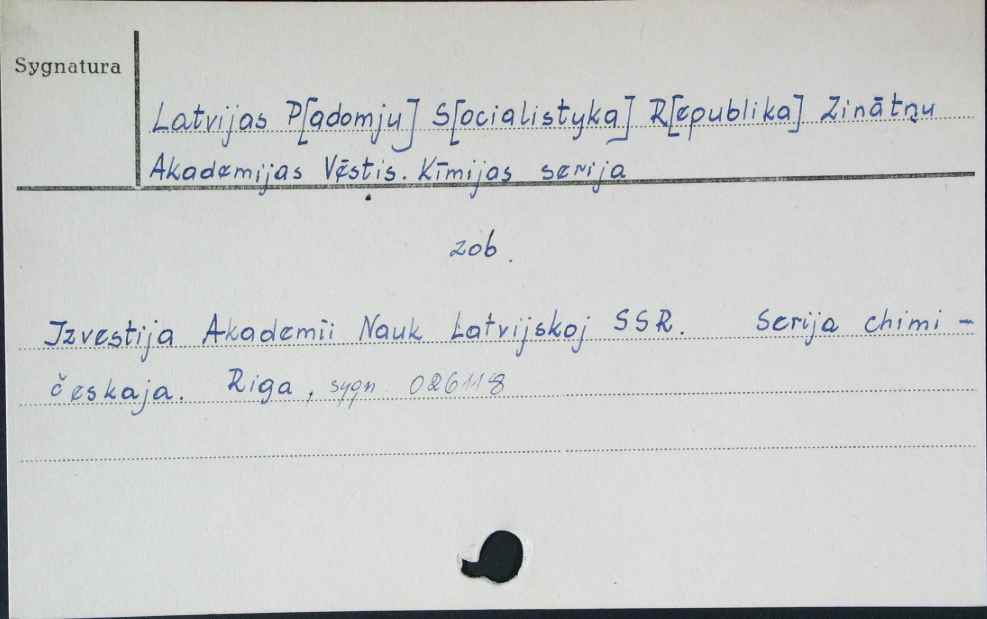 Sygnatura
Latvijas P[adomju] S[ocialistyka] R[epublika] Zinātņu
Akademijas Vēstis. Kīmijas serija
zob.
Izvestija Akademii Nauk Latvijskoj SSR. Serija chimi-
českaja. Riga, sygn 026118